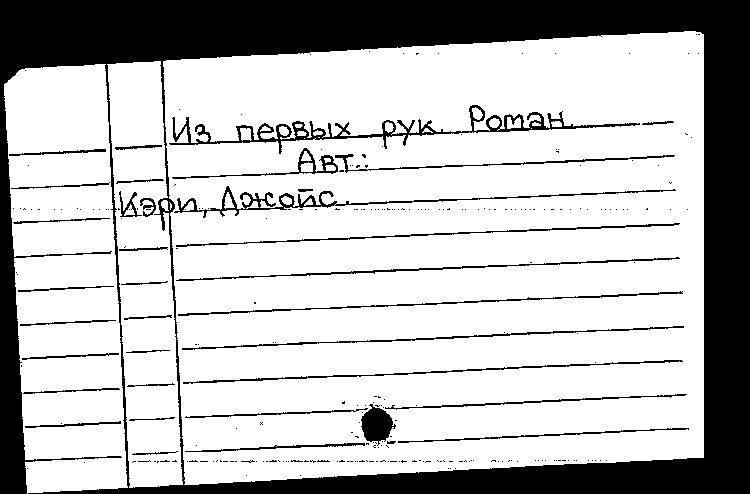 Из первых рук. Роман.
Авт.:
Кэри, Джойс.